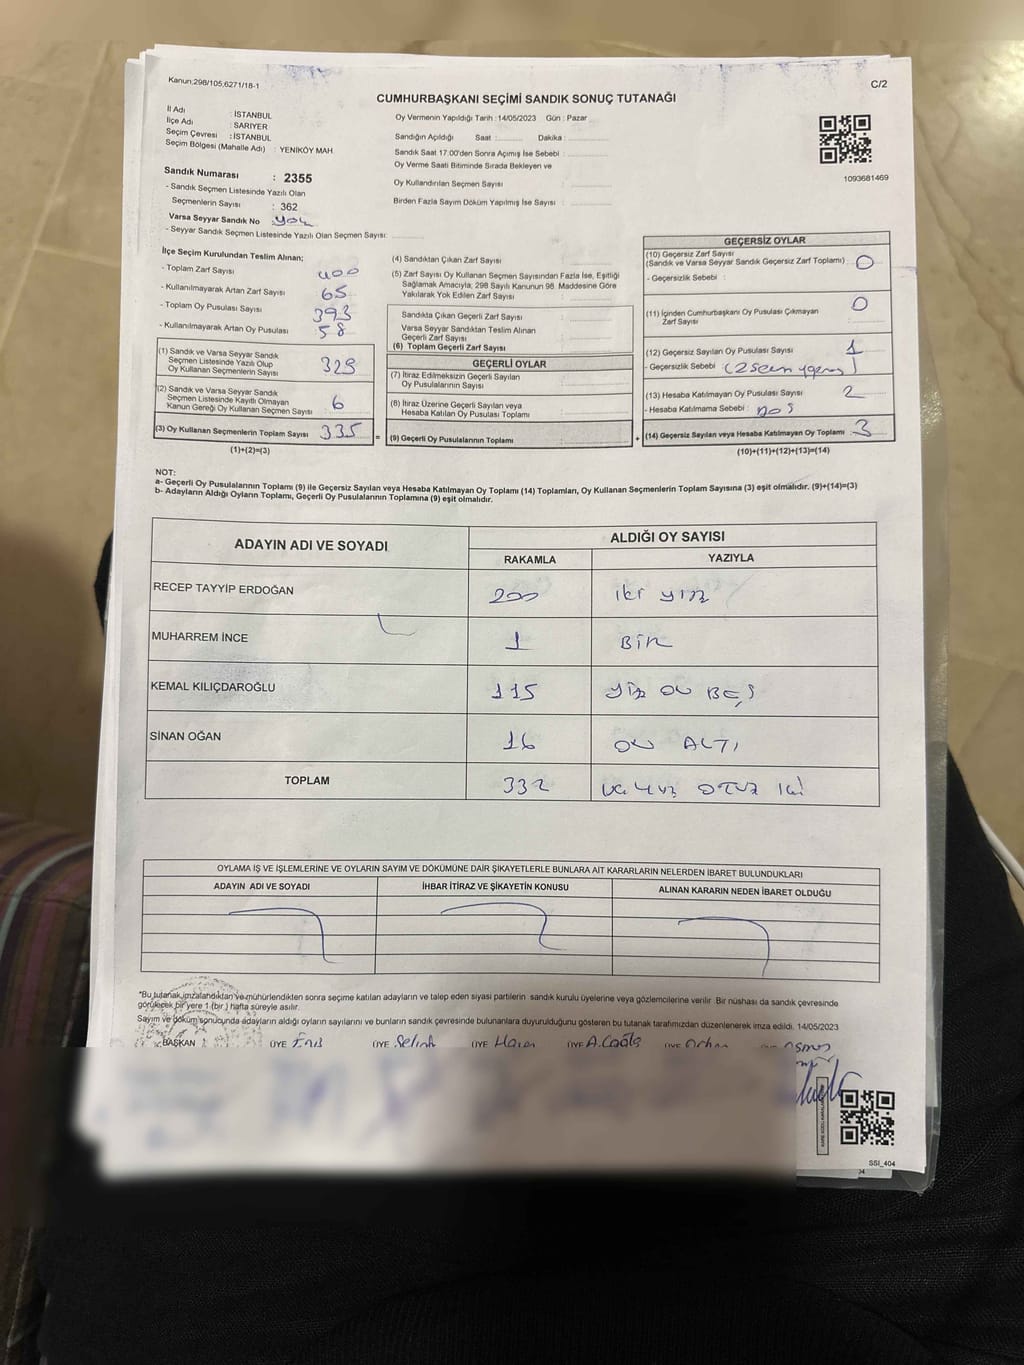 Kanun:298/105,6271/18-1
C/2
CUMHURBAŞKANI SEÇİMİ SANDIK SONUÇ TUTANAĞI
İl Adı : İSTANBUL
İlçe Adı : SARIYER
Seçim Çevresi : İSTANBUL
Seçim Bölgesi (Mahalle Adı) : YENİKÖY MAH.
Oy Vermenin Yapıldığı Tarih :14/05/2023 Gün : Pazar
Sandığın Açıldığı Saat : Dakika :
Sandık Saat 17:00'den Sonra Açımış İse Sebebi :
Oy Verme Saati Bitiminde Sırada Bekleyen ve
Oy Kullandırılan Seçmen Sayısı :
Birden Fazla Sayım Döküm Yapılmış İse Sayısı :
1093681469
Sandık Numarası : 2355
- Sandık Seçmen Listesinde Yazılı Olan
Seçmenlerin Sayısı : 362
Varsa Seyyar Sandık No : yok
- Seyyar Sandık Seçmen Listesinde Yazılı Olan Seçmen Sayısı:
İlçe Seçim Kurulundan Teslim Alınan;
- Toplam Zarf Sayısı 400
- Kullanılmayarak Artan Zarf Sayısı 65
- Toplam Oy Pusulası Sayısı 393
- Kullanılmayarak Artan Oy Pusulası 58
(1) Sandık ve Varsa Seyyar Sandık
Seçmen Listesinde Yazılı Olup
Oy Kullanan Seçmenlerin Sayısı 329
(2) Sandık ve Varsa Seyyar Sandık
Seçmen Listesinde Kayıtlı Olmayan
Kanun Gereği Oy Kullanan Seçmen Sayısı 6
(3) Oy Kullanan Seçmenlerin Toplam Sayısı 335
(1)+(2)=(3)
(4) Sandıktan Çıkan Zarf Sayısı
(5) Zarf Sayısı Oy Kullanan Seçmen Sayısından Fazla İse, Eşitliği
Sağlamak Amacıyla, 298 Sayılı Kanunun 98. Maddesine Göre
Yakılarak Yok Edilen Zarf Sayısı :
Sandıkta Çıkan Geçerli Zarf Sayısı
Varsa Seyyar Sandıktan Teslim Alınan
Geçerli Zarf Sayısı
(6) Toplam Geçerli Zarf Sayısı
GEÇERLİ OYLAR
(7) İtiraz Edilmeksizin Geçerli Sayılan
Oy Pusulalarının Sayısı
(8) İtiraz Üzerine Geçerli Sayılan veya
Hesaba Katılan Oy Pusulası Toplamı
= (9) Geçerli Oy Pusulalarının Toplamı +
GEÇERSİZ OYLAR
(10) Geçersiz Zarf Sayısı
(Sandık ve Varsa Seyyar Sandık Geçersiz Zarf Toplamı) 0
- Geçersizlik Sebebi :
(11) İçinden Cumhurbaşkanı Oy Pusulası Çıkmayan
Zarf Sayısı : 0
(12) Geçersiz Sayılan Oy Pusulası Sayısı 1
- Geçersizlik Sebebi
(13) Hesaba Katılmayan Oy Pusulası Sayısı 2
- Hesaba Katılmama Sebebi : boş
(14) Geçersiz Sayılan veya Hesaba Katılmayan Oy Toplamı 3
(10)+(11)+(12)+(13)=(14)
NOT:
a- Geçerli Oy Pusulalarının Toplamı (9) ile Geçersiz Sayılan veya Hesaba Katılmayan Oy Toplamı (14) Toplamları, Oy Kullanan Seçmenlerin Toplam Sayısına (3) eşit olmalıdır. (9)+(14)=(3)
b- Adayların Aldığı Oyların Toplamı, Geçerli Oy Pusulalarının Toplamına (9) eşit olmalıdır.
ADAYIN ADI VE SOYADI ALDIĞI OY SAYISI
RAKAMLA YAZIYLA
RECEP TAYYİP ERDOĞAN 200 iki yüz
MUHARREM İNCE 1 BİR
KEMAL KILIÇDAROĞLU 115 yüz ON BEŞ
SİNAN OĞAN 16 ON ALTI
TOPLAM 332 üç yüz OTUZ iki
OYLAMA İŞ VE İŞLEMLERİNE VE OYLARIN SAYIM VE DÖKÜMÜNE DAİR ŞİKAYETLERLE BUNLARA AİT KARARLARIN NELERDEN İBARET BULUNDUKLARI
ADAYIN ADI VE SOYADI İHBAR İTİRAZ VE ŞİKAYETİN KONUSU ALINAN KARARIN NEDEN İBARET OLDUĞU
*Bu tutanak imzalandıktan ve mühürlendikten sonra seçime katılan adayların ve talep eden siyasi partilerin sandık kurulu üyelerine veya gözlemcilerine verilir. Bir nüshası da sandık çevresinde
görülecek bir yere 1 (bir ) hafta süreyle asılır.
Sayım ve döküm sonucunda adayların aldığı oyların sayılarını ve bunların sandık çevresinde bulunanlara duyurulduğunu gösteren bu tutanak tarafımızdan düzenlenerek imza edildi. 14/05/2023
BAŞKAN ÜYE ÜYE Selin ÜYE Hasan ÜYE A. ÜYE Orhan ÜYE Osman
SSI_404